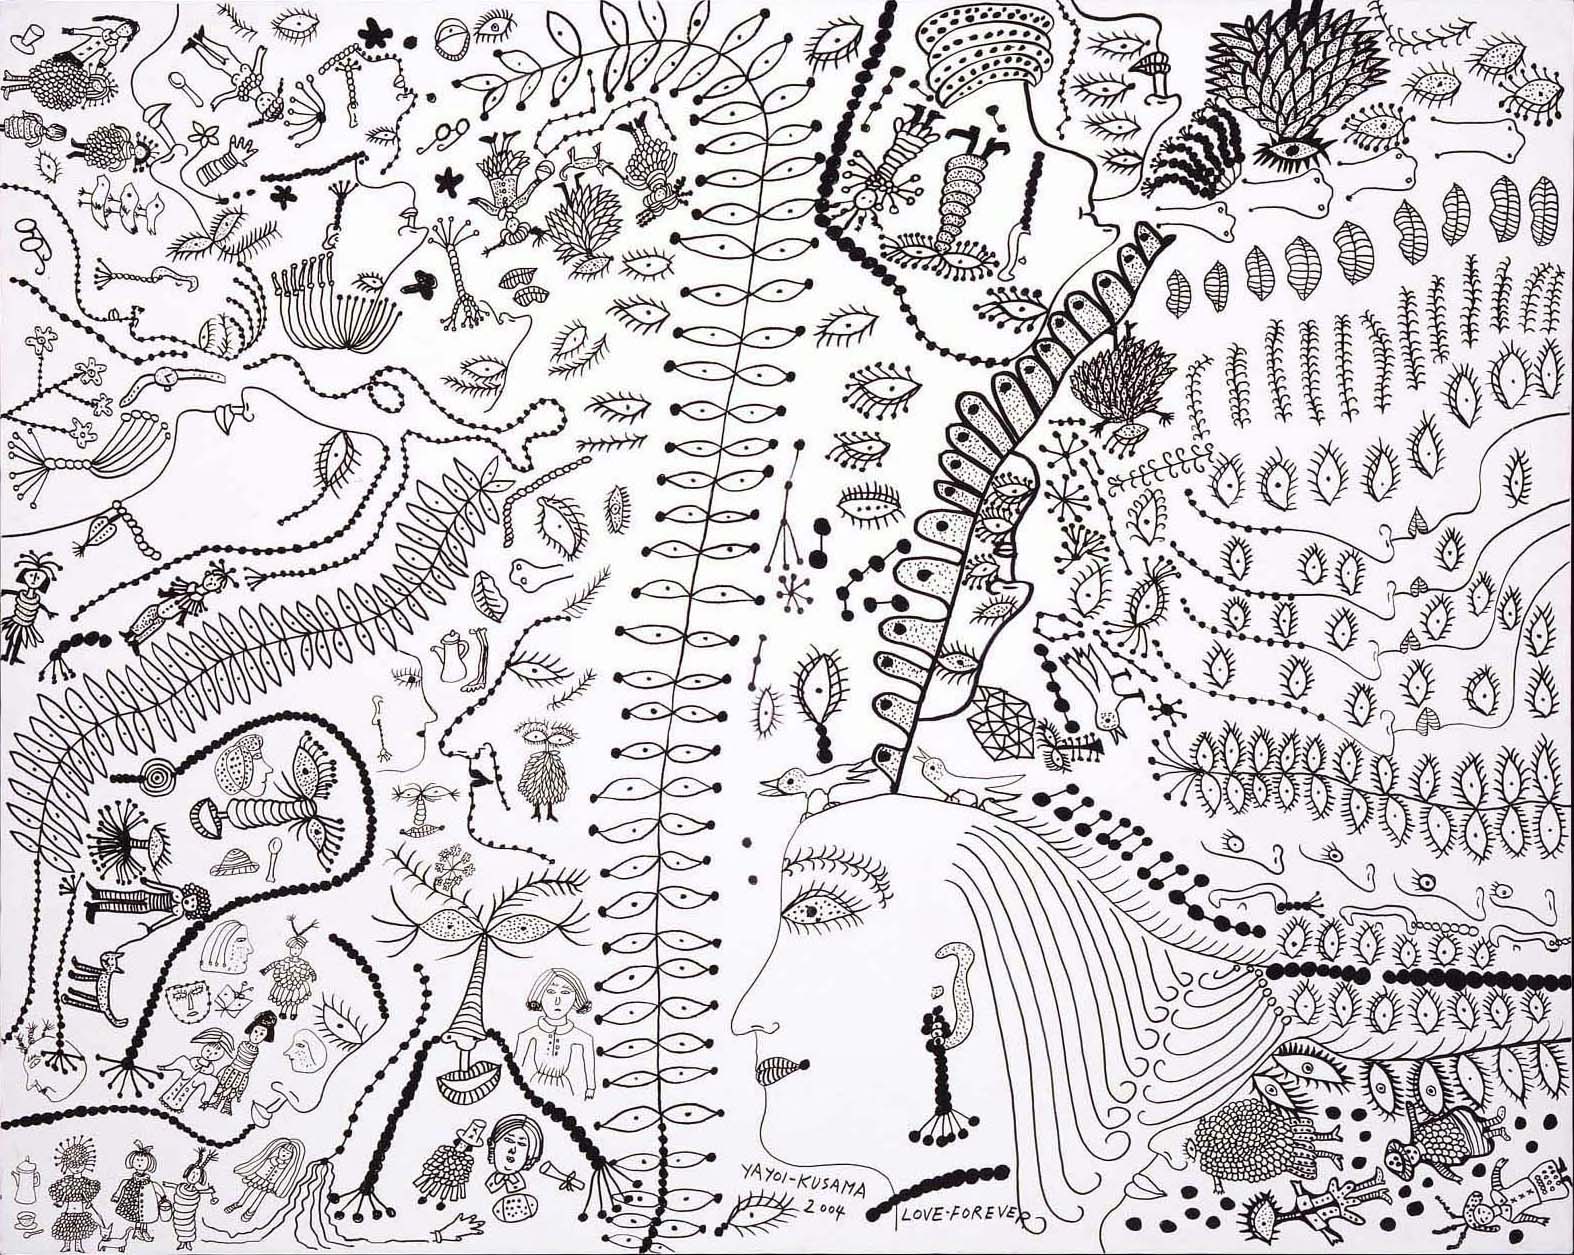 YAYOI-KUSAMA
2004
LOVE-FOREVER